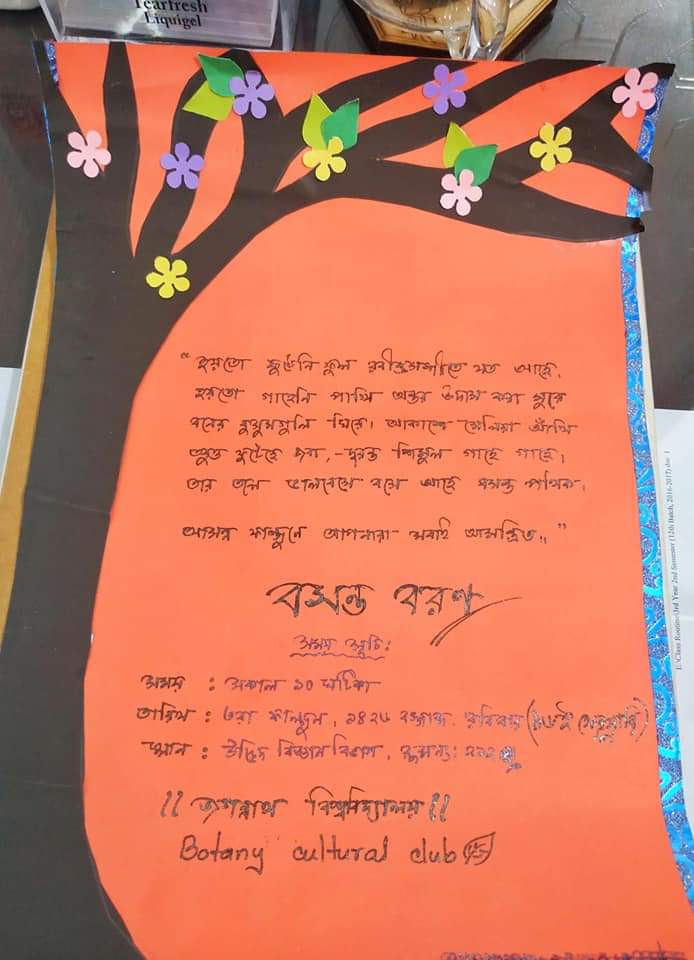 Tearfresh
Liquigel
"হয়তো ফুটেনি ফুল রবীন্দ্রসঙ্গীতে যত আছে,
হয়তো গাহেনি পাখি অন্তর উদাস করা সুরে
বনের কুসুমগুলি ঘিরে। আকাশে মেলিয়া আঁখি
তবুও ফুটেছে জবা,-দুরন্ত শিমুল গাছে গাছে,
তার তলে ভালবেসে বসে আছে বসন্ত পথিক।
আসন্ন ফাল্গুনে আপনারা সবাই আমন্ত্রিত।।"
বসন্ত বরণ
সময় সূচি:
সময় : সকাল ১০ ঘটিকা
তারিখ : ৩রা ফাল্গুন, ১৪২৬ বঙ্গাব্দ. রবিবার (১৬ই ফেব্রুয়ারি)
স্থান : উদ্ভিদ বিজ্ঞান বিভাগ,
।। জগন্নাথ বিশ্ববিদ্যালয় ।।
Botany cultural club
E:\Class Routine\3rd Year 2nd Semester (12th Batch, 2016-2017).doc 1